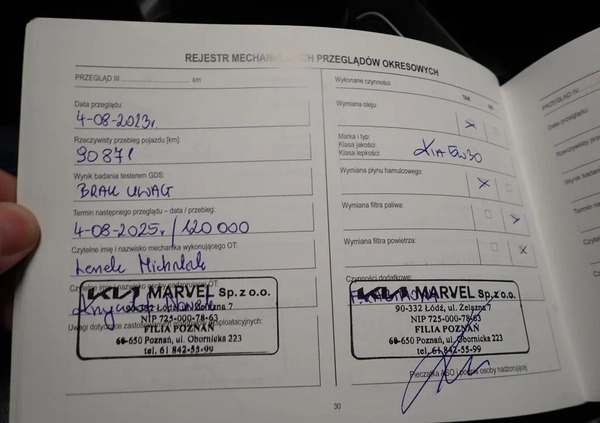 REJESTR MECHANICZNYCH PRZEGLĄDÓW OKRESOWYCH
PRZEGLĄD III km
Data przeglądu:
4-08-2023r.
Rzeczywisty przebieg pojazdu [km]:
90871
Wynik badania testerem GDS:
BRAK UWAG
Termin następnego przeglądu – data / przebieg:
4-08-2025r / 120 000
Czytelne imię i nazwisko mechanika wykonującego OT:
Michalak
Czytelne imię i nazwisko osoby nadzorującej OT:
KIA MARVEL Sp. z o.o.
90-332 Łódź, ul. Żelazna 7
NIP 725-000-78-63
FILIA POZNAŃ
60-650 Poznań, ul. Obornicka 223
tel. 61 842-55-99
Uwagi dotyczące eksploatacyjnych:
Wykonane czynności: TAK NIE
Wymiana oleju:
Marka i typ:
Klasa jakości:
Klasa lepkości:
KIA 5W30
Wymiana płynu hamulcowego:
Wymiana filtra paliwa:
Wymiana filtra powietrza:
Czynności dodatkowe:
KIA MARVEL Sp. z o.o.
90-332 Łódź, ul. Żelazna 7
NIP 725-000-78-63
FILIA POZNAŃ
60-650 Poznań, ul. Obornicka 223
tel. 61 842-55-99
Pieczątka ASO i podpis osoby nadzorującej
30
PRZEGLĄD IV